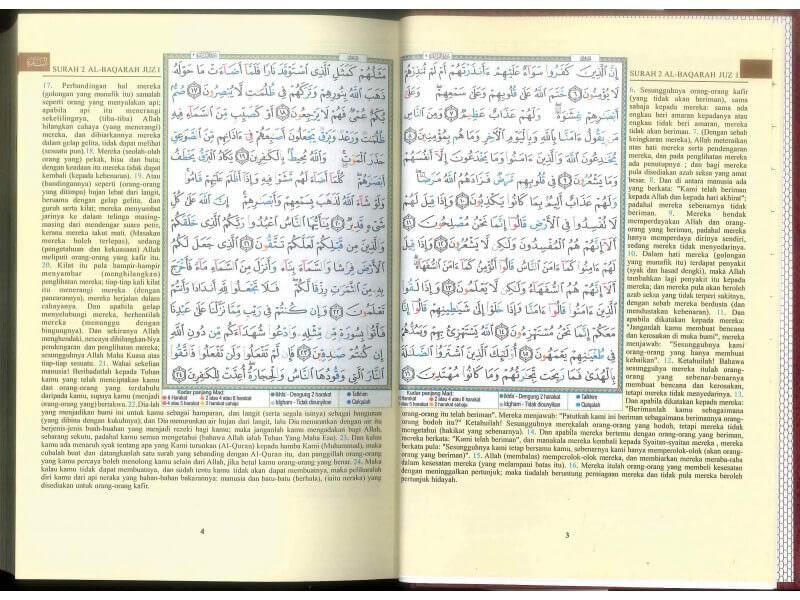 SURAH 2 AL-BAQARAH JUZ 1
إِنَّ الَّذِينَ كَفَرُوا سَوَاءٌ عَلَيْهِمْ ءَأَنذَرْتَهُمْ أَمْ لَمْ تُنذِرْهُمْ
لَا يُؤْمِنُونَ ٦ خَتَمَ اللَّهُ عَلَىٰ قُلُوبِهِمْ وَعَلَىٰ سَمْعِهِمْ وَعَلَىٰ
أَبْصَارِهِمْ غِشَاوَةٌ وَلَهُمْ عَذَابٌ عَظِيمٌ ٧ وَمِنَ النَّاسِ
مَن يَقُولُ ءَامَنَّا بِاللَّهِ وَبِالْيَوْمِ الْآخِرِ وَمَا هُم بِمُؤْمِنِينَ ٨
يُخَادِعُونَ اللَّهَ وَالَّذِينَ ءَامَنُوا وَمَا يَخْدَعُونَ إِلَّا أَنفُسَهُمْ
وَمَا يَشْعُرُونَ ٩ فِي قُلُوبِهِم مَّرَضٌ فَزَادَهُمُ اللَّهُ مَرَضًا
وَلَهُمْ عَذَابٌ أَلِيمٌ بِمَا كَانُوا يَكْذِبُونَ ١٠ وَإِذَا قِيلَ لَهُمْ
لَا تُفْسِدُوا فِي الْأَرْضِ قَالُوا إِنَّمَا نَحْنُ مُصْلِحُونَ ١١
أَلَا إِنَّهُمْ هُمُ الْمُفْسِدُونَ وَلَٰكِن لَّا يَشْعُرُونَ ١٢ وَإِذَا قِيلَ
لَهُمْ ءَامِنُوا كَمَا ءَامَنَ النَّاسُ قَالُوا أَنُؤْمِنُ كَمَا ءَامَنَ السُّفَهَاءُ
أَلَا إِنَّهُمْ هُمُ السُّفَهَاءُ وَلَٰكِن لَّا يَعْلَمُونَ ١٣ وَإِذَا لَقُوا
الَّذِينَ ءَامَنُوا قَالُوا ءَامَنَّا وَإِذَا خَلَوْا إِلَىٰ شَيَاطِينِهِمْ قَالُوا إِنَّا
مَعَكُمْ إِنَّمَا نَحْنُ مُسْتَهْزِءُونَ ١٤ اللَّهُ يَسْتَهْزِئُ بِهِمْ وَيَمُدُّهُمْ
فِي طُغْيَانِهِمْ يَعْمَهُونَ ١٥ أُولَٰئِكَ الَّذِينَ اشْتَرَوُا الضَّلَالَةَ
بِالْهُدَىٰ فَمَا رَبِحَت تِّجَارَتُهُمْ وَمَا كَانُوا مُهْتَدِينَ ١٦
Kadar panjang Mad:
6 Harakat
2 atau 4 atau 6 harakat
4 atau 5 harakat
2 harakat sahaja
Ikhfa - Dengung 2 harakat
Idgham - Tidak disunyikan
Tafkhim
Qalqalah
6. Sesungguhnya orang-orang kafir
(yang tidak akan beriman), sama
sahaja kepada mereka: sama ada
engkau beri amaran kepadanya atau
engkau tidak beri amaran, mereka
tidak akan beriman. 7. (Dengan sebab
keingkaran mereka), Allah meteraikan
atas hati mereka serta pendengaran
mereka, dan pada penglihatan mereka
ada penutupnya ; dan bagi mereka
pula disediakan azab seksa yang amat
besar. 8. Dan di antara manusia ada
yang berkata: "Kami telah beriman
kepada Allah dan kepada hari akhirat";
padahal mereka sebenarnya tidak
beriman. 9. Mereka hendak
memperdayakan Allah dan orang-
orang yang beriman, padahal mereka
hanya memperdaya dirinya sendiri,
sedang mereka tidak menyedarinya.
10. Dalam hati mereka (golongan
yang munafik itu) terdapat penyakit
(syak dan hasad dengki), maka Allah
tambahkan lagi penyakit itu kepada
mereka; dan mereka pula akan beroleh
azab seksa yang tidak terperi sakitnya,
dengan sebab mereka berdusta (dan
mendustakan kebenaran). 11. Dan
apabila dikatakan kepada mereka:
"Janganlah kamu membuat bencana
dan kerosakan di muka bumi", mereka
menjawab: "Sesungguhnya kami
orang-orang yang hanya membuat
kebaikan". 12. Ketahuilah! Bahawa
sesungguhnya mereka itulah orang-
orang yang sebenar-benarnya
membuat bencana dan kerosakan,
tetapi mereka tidak menyedarinya. 13.
Dan apabila dikatakan kepada mereka:
"Berimanlah kamu sebagaimana
orang-orang itu telah beriman". Mereka menjawab: "Patutkah kami ini beriman sebagaimana berimannya orang-
orang bodoh itu?" Ketahuilah! Sesungguhnya merekalah orang-orang yang bodoh, tetapi mereka tidak
mengetahui (hakikat yang sebenarnya). 14. Dan apabila mereka bertemu dengan orang-orang yang beriman,
mereka berkata: "Kami telah beriman", dan manakala mereka kembali kepada Syaitan-syaitan mereka , mereka
berkata pula: "Sesungguhnya kami tetap bersama kamu, sebenarnya kami hanya memperolok-olok (akan orang-
orang yang beriman)". 15. Allah (membalas) memperolok-olok mereka, dan membiarkan mereka meraba-raba
dalam kesesatan mereka (yang melampaui batas itu). 16. Mereka itulah orang-orang yang membeli kesesatan
dengan meninggalkan pertunjuk; maka tiadalah beruntung perniagaan mereka dan tidak pula mereka beroleh
pertunjuk hidayah.
3
SURAH 2 AL-BAQARAH JUZ 1
مَثَلُهُمْ كَمَثَلِ الَّذِي اسْتَوْقَدَ نَارًا فَلَمَّا أَضَاءَتْ مَا حَوْلَهُ
ذَهَبَ اللَّهُ بِنُورِهِمْ وَتَرَكَهُمْ فِي ظُلُمَاتٍ لَّا يُبْصِرُونَ ١٧ صُمٌّ
بُكْمٌ عُمْيٌ فَهُمْ لَا يَرْجِعُونَ ١٨ أَوْ كَصَيِّبٍ مِّنَ السَّمَاءِ فِيهِ
ظُلُمَاتٌ وَرَعْدٌ وَبَرْقٌ يَجْعَلُونَ أَصَابِعَهُمْ فِي ءَاذَانِهِم مِّنَ الصَّوَاعِقِ
حَذَرَ الْمَوْتِ وَاللَّهُ مُحِيطٌ بِالْكَافِرِينَ ١٩ يَكَادُ الْبَرْقُ يَخْطَفُ
أَبْصَارَهُمْ كُلَّمَا أَضَاءَ لَهُم مَّشَوْا فِيهِ وَإِذَا أَظْلَمَ عَلَيْهِمْ قَامُوا
وَلَوْ شَاءَ اللَّهُ لَذَهَبَ بِسَمْعِهِمْ وَأَبْصَارِهِمْ إِنَّ اللَّهَ عَلَىٰ كُلِّ
شَيْءٍ قَدِيرٌ ٢٠ يَا أَيُّهَا النَّاسُ اعْبُدُوا رَبَّكُمُ الَّذِي خَلَقَكُمْ
وَالَّذِينَ مِن قَبْلِكُمْ لَعَلَّكُمْ تَتَّقُونَ ٢١ الَّذِي جَعَلَ لَكُمُ
الْأَرْضَ فِرَاشًا وَالسَّمَاءَ بِنَاءً وَأَنزَلَ مِنَ السَّمَاءِ مَاءً فَأَخْرَجَ
بِهِ مِنَ الثَّمَرَاتِ رِزْقًا لَّكُمْ فَلَا تَجْعَلُوا لِلَّهِ أَندَادًا وَأَنتُمْ
تَعْلَمُونَ ٢٢ وَإِن كُنتُمْ فِي رَيْبٍ مِّمَّا نَزَّلْنَا عَلَىٰ عَبْدِنَا
فَأْتُوا بِسُورَةٍ مِّن مِّثْلِهِ وَادْعُوا شُهَدَاءَكُم مِّن دُونِ اللَّهِ
إِن كُنتُمْ صَادِقِينَ ٢٣ فَإِن لَّمْ تَفْعَلُوا وَلَن تَفْعَلُوا فَاتَّقُوا
النَّارَ الَّتِي وَقُودُهَا النَّاسُ وَالْحِجَارَةُ أُعِدَّتْ لِلْكَافِرِينَ ٢٤
Kadar panjang Mad:
6 Harakat
2 atau 4 atau 6 harakat
4 atau 5 harakat
2 harakat sahaja
Ikhfa - Dengung 2 harakat
Idgham - Tidak disunyikan
Tafkhim
Qalqalah
17. Perbandingan hal mereka
(golongan yang munafik itu) samalah
seperti orang yang menyalakan api;
apabila api itu menerangi
sekelilingnya, (tiba-tiba) Allah
hilangkan cahaya (yang menerangi)
mereka, dan dibiarkannya mereka
dalam gelap gelita, tidak dapat melihat
(sesuatu pun).18. Mereka (seolah-olah
orang yang) pekak, bisu dan buta;
dengan keadaan itu mereka tidak dapat
kembali (kepada kebenaran). 19. Atau
(bandingannya) seperti (orang-orang
yang ditimpa) hujan lebat dari langit,
bersama dengan gelap gelita, dan
guruh serta kilat; mereka menyumbat
jarinya ke dalam telinga masing-
masing dari mendengar suara petir,
kerana mereka takut mati. (Masakan
mereka boleh terlepas), sedang
(pengetahuan dan kekuasaan) Allah
meliputi orang-orang yang kafir itu.
20. Kilat itu pula hampir-hampir
menyambar (menghilangkan)
penglihatan mereka; tiap-tiap kali kilat
itu menerangi mereka (dengan
pancarannya), mereka berjalan dalam
cahayanya. Dan apabila gelap
menyelubungi mereka, berhentilah
mereka (menunggu dengan
bingungnya). Dan sekiranya Allah
menghendaki, nescaya dihilangkan-Nya
pendengaran dan penglihatan mereka;
sesungguhnya Allah Maha Kuasa atas
tiap-tiap sesuatu. 21. Wahai sekelian
manusia! Beribadatlah kepada Tuhan
kamu yang telah menciptakan kamu
dan orang-orang yang terdahulu
daripada kamu, supaya kamu (menjadi
orang-orang yang) bertakwa. 22.Dia-lah
yang menjadikan bumi ini untuk kamu sebagai hamparan, dan langit (serta segala isinya) sebagai bangunan
(yang dibina dengan kukuhnya); dan Dia menurunkan air hujan dari langit, lalu Dia menumbuhkan dengan air itu
berjenis-jenis buah-buahan yang menjadi rezeki bagi kamu; maka janganlah kamu mengadakan bagi Allah,
sebarang sekutu, padahal kamu semua mengetahui (bahawa Allah ialah Tuhan Yang Maha Esa). 23. Dan kalau
kamu ada menaruh syak tentang apa yang Kami turunkan (Al-Quran) kepada hamba Kami (Muhammad), maka
cubalah buat dan datangkanlah satu surah yang sebanding dengan Al-Quran itu, dan panggillah orang-orang
yang kamu percaya boleh menolong kamu selain dari Allah, jika betul kamu orang-orang yang benar. 24. Maka
kalau kamu tidak dapat membuatnya, dan sudah tentu kamu tidak akan dapat membuatnya, maka peliharalah
diri kamu dari api neraka yang bahan-bahan bakarannya: manusia dan batu-batu (berhala), (iaitu neraka) yang
disediakan untuk orang-orang kafir.
4